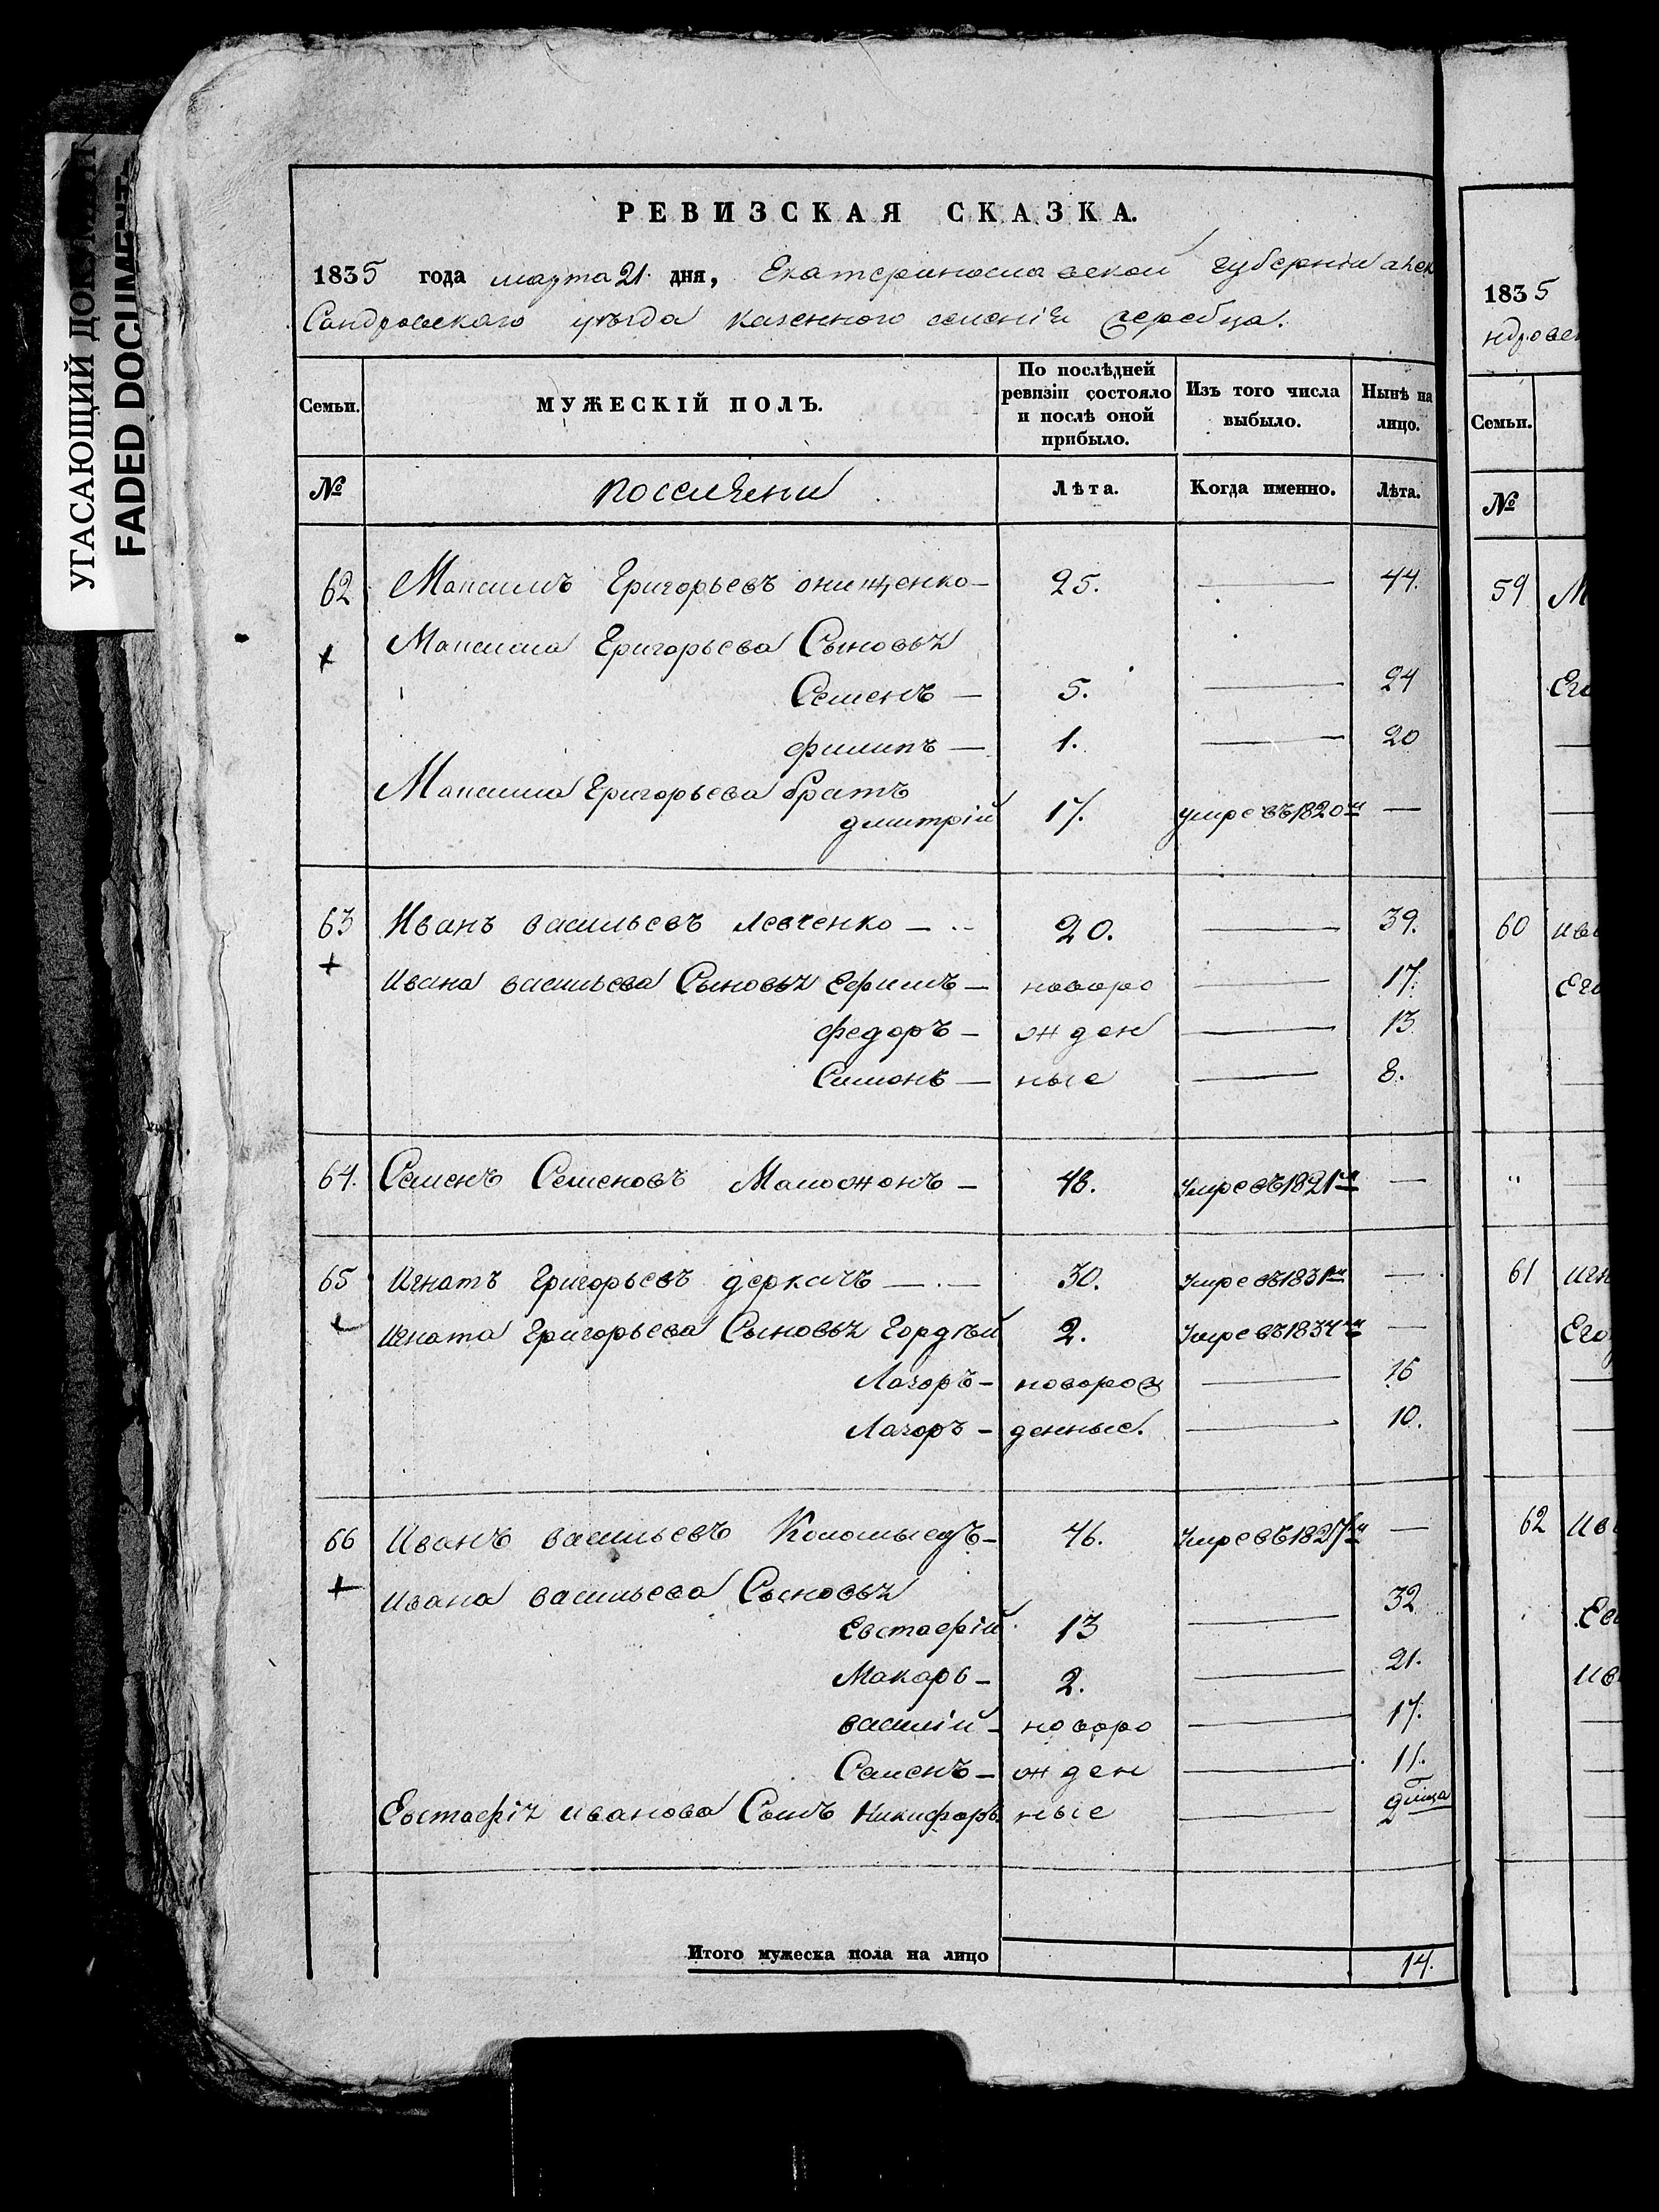 УГАСАЮЩИЙ ДОКУМЕНТ
FADED DOCUMENT
РЕВИЗСКАЯ СКАЗКА.
1835 года марта 21. дня, Екатеринославской губерніи алек
Сандровскаго уѣзда казенного селенія жеребца.
Семьи. МУЖЕСКІЙ ПОЛЪ. По послѣдней ревизіи состояло и послѣ оной прибыло. Изъ того числа выбыло. Нынѣ на лицо.
№ поселяни Лѣта. Когда именно. Лѣта.
62 Максимъ Григорьевъ онищенко — 25. — 44.
Максима Григорьева Сыновья
Семенъ — 5. — 24
филипъ — 1. — 20
Максима Григорьева братъ
дмитрій 17. умре въ 1820м —
63 Иванъ васильевъ левченко — 20. — 39.
Ивана васильева Сыновья Ефимъ — новоро — 17.
федоръ — жден — 13.
Симонъ — ные — 8.
64. Семенъ Семеновъ Маложонъ — 48. умре въ 1821м —
65 Игнатъ Григорьевъ деркачъ — 30. умре въ 1831м —
Игната Григорьева Сыновья Гордѣй 2. умре въ 1834м —
Лазоръ — новорож — 16
Лазоръ — денные. — 10.
66 Иванъ васильевъ Коломыецъ — 46. умре въ 1827м —
Ивана васильева Сыновья
Евстафій 13 — 32
Макаръ — 2. — 21.
василій — новоро — 17.
Семенъ — жден — 11.
Евстафія иванова Сынъ Никифоръ ные — 2
Итого мужеска пола на лицо 14.
1835
ндровс
Семьи.
№
59 М
Его
60 ив
Его
"
61 иг
Его
62 ив
Ев
ив